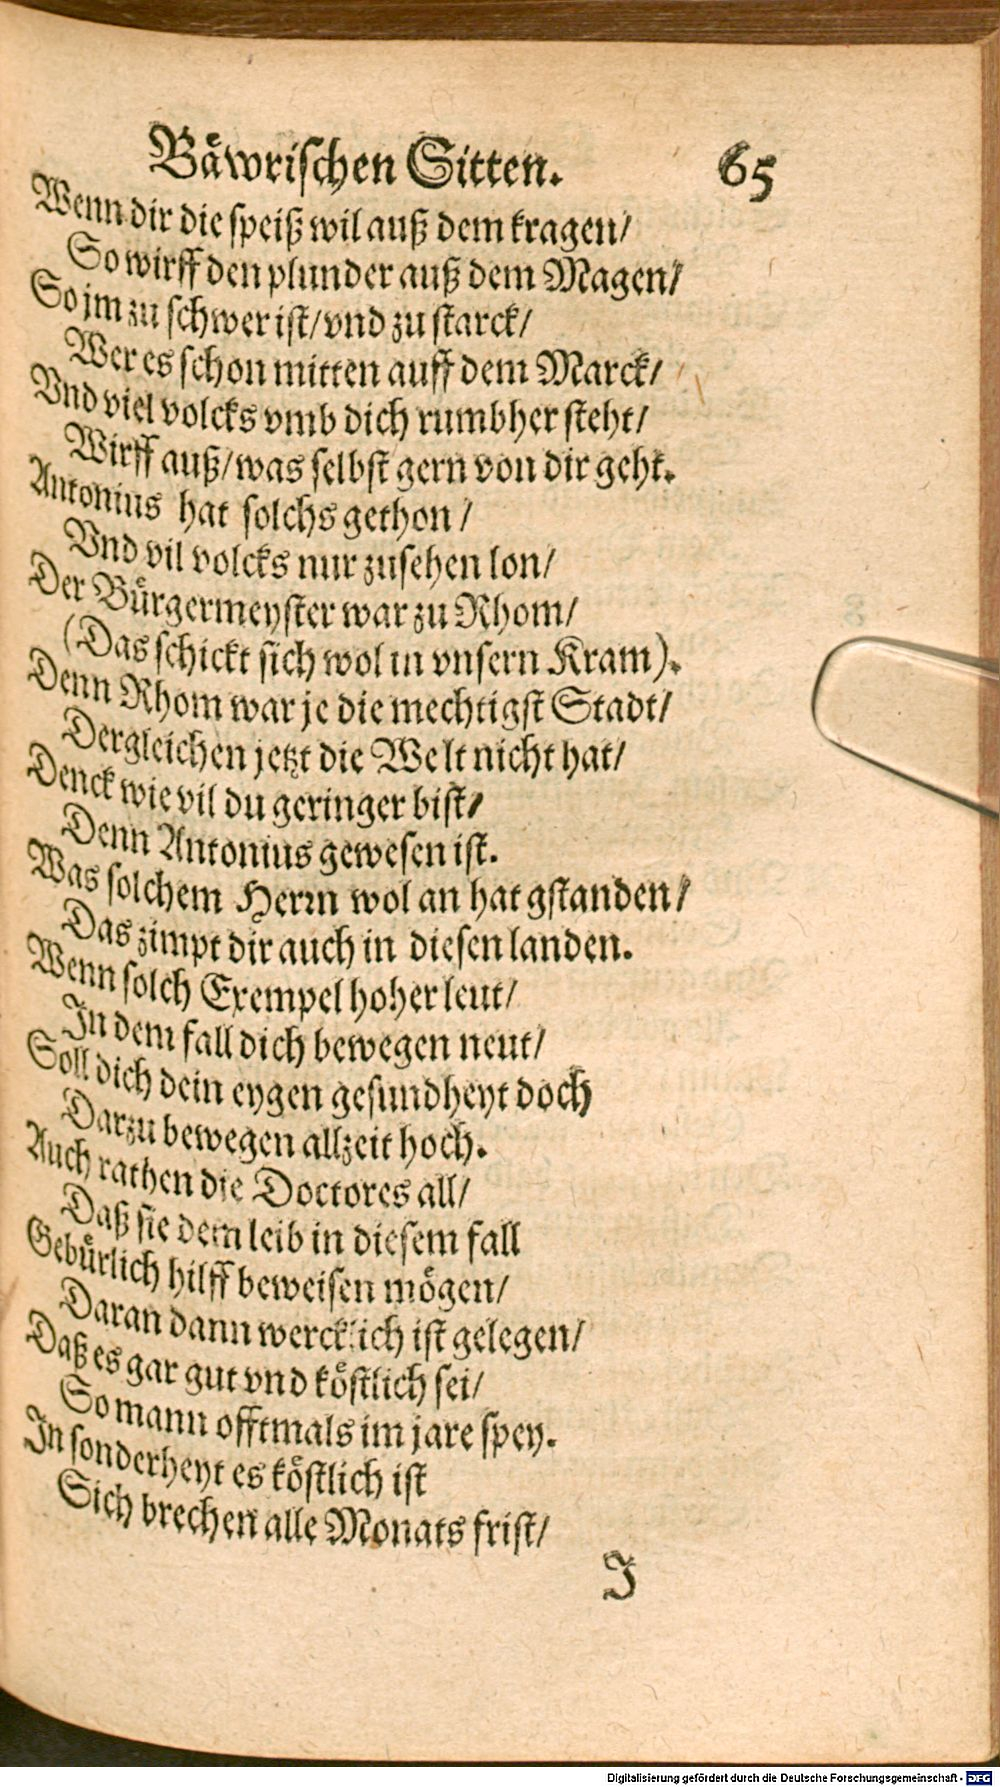 Bäwrischen Sitten. 65
Wenn dir die speiß wil auß dem kragen/
So wirff den plunder auß dem Magen/
So jm zu schwer ist/ vnd zu starck/
Wer es schon mitten auff dem Marck/
Vnd viel volcks vmb dich rumbher steht/
Wirff auß/ was selbst gern von dir geht.
Antonius hat solchs gethon/
Vnd vil volcks nur zusehen lon/
Der Bürgermeyster war zu Rhom/
(Das schickt sich wol in vnsern Kram).
Denn Rhom war je die mechtigst Stadt/
Dergleichen jetzt die Welt nicht hat/
Denck wie vil du geringer bist/
Denn Antonius gewesen ist.
Was solchem Herrn wol an hat gstanden/
Das zimpt dir auch in diesen landen.
Wenn solch Exempel hoher leut/
In dem fall dich bewegen neut/
Soll dich dein eygen gesundheyt doch
Darzu bewegen allzeit hoch.
Auch rathen die Doctores all/
Daß sie dem leib in diesem fall
Gebürlich hilff beweisen mögen/
Daran dann wercklich ist gelegen/
Daß es gar gut vnd köstlich sei/
So mann offtmals im jare spey.
In sonderheyt es köstlich ist
Sich brechen alle Monats frist/
J
Digitalisierung gefördert durch die Deutsche Forschungsgemeinschaft - DFG